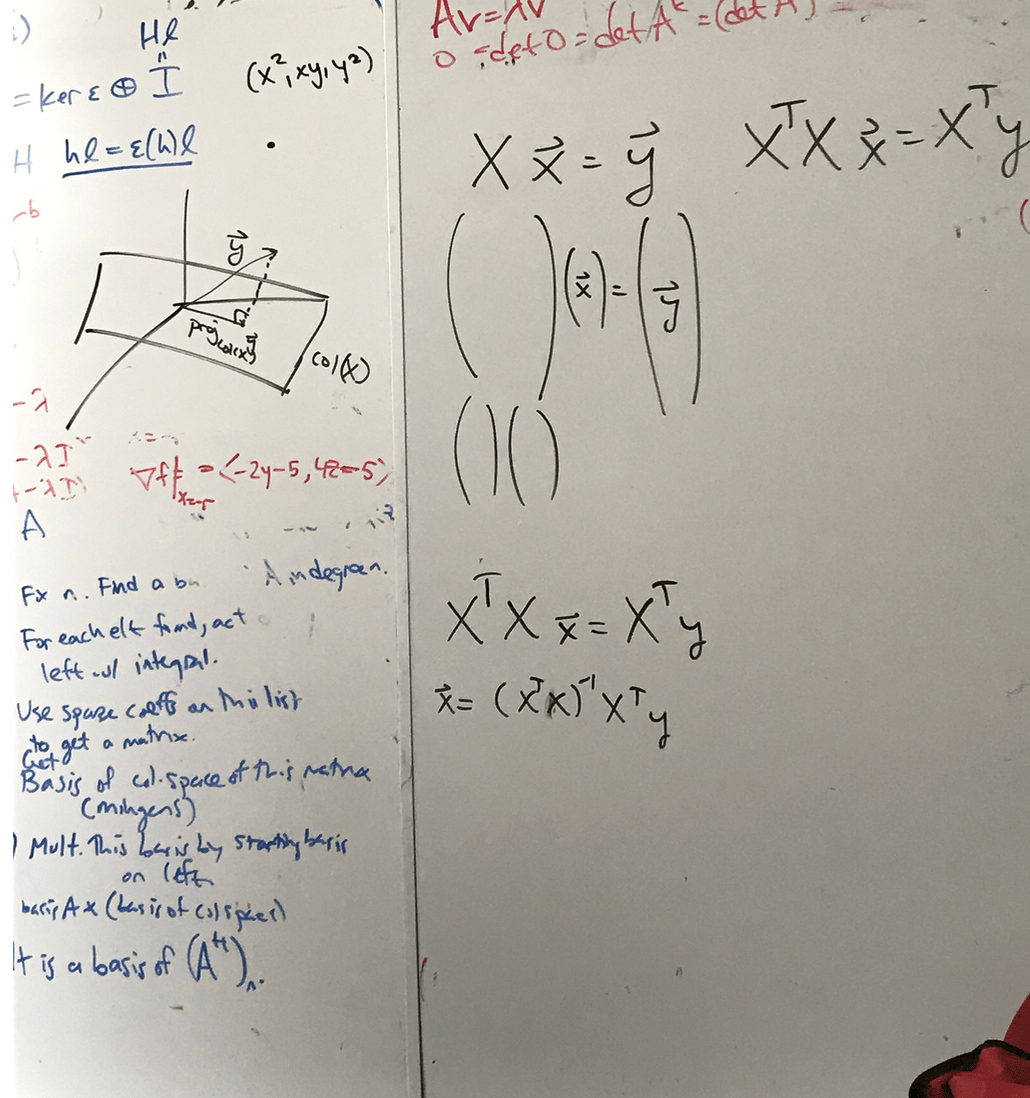 Hl
= ker ε ⊕ I
(x², xy, y²)
H hl = ε(h)l
y⃗
proj_col(X) y⃗
col(X)
-λ
-λI
+-λI
∇f|ₓ₌ = <-2y-5, 4z-5>
A
Fix n. Find a A in degree n.
For each elt found, act
left w/ integral.
Use sparse coeffs on this list
to get a matrix.
Get
Basis of col. space of this matrix
(mingens)
Mult. This basis by starting basis
on left
basis A × (basis of col space)
It is a basis of (Aᴴ)ₙ.
Av = λv
0 = det 0 = det Aᵏ = (det A)
X x⃗ = y⃗
XᵀX x⃗ = Xᵀy
( ) (x⃗) = (y⃗)
( ) ( )
XᵀX x⃗ = Xᵀy
x⃗ = (XᵀX)⁻¹Xᵀy